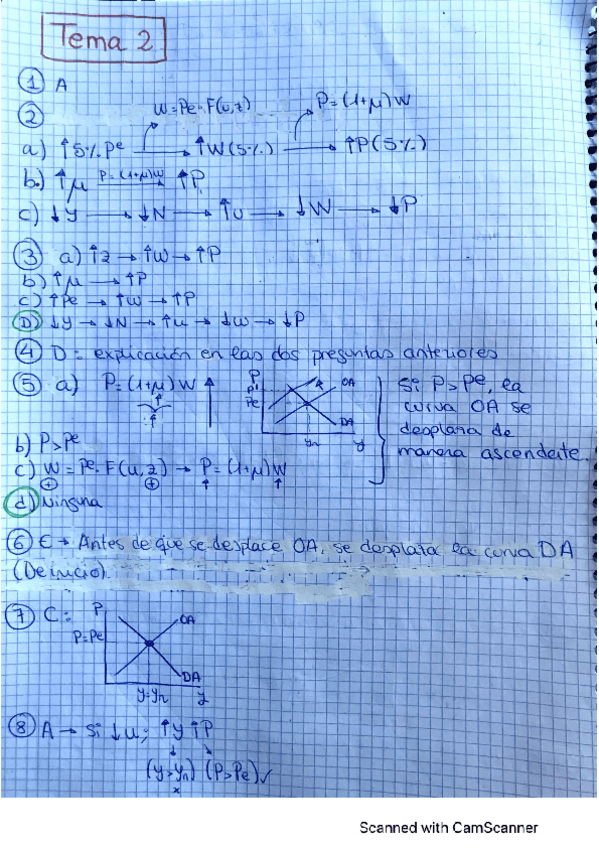 Tema 2
① A
②
W=Pe·F(u,z) P=(1+μ)W
a) ↑5% Pe → ↑W(5%) → ↑P(5%)
b) ↑μ P=(1+μ)W → ↑P
c) ↓Y → ↓N → ↑u → ↓W → ↓P
③ a) ↑z → ↑W → ↑P
b) ↑μ → ↑P
c) ↑Pe → ↑W → ↑P
D) ↓Y → ↓N → ↑u → ↓W → ↓P
④ D = explicación en las dos preguntas anteriores
⑤ a) P=(1+μ)W ↑
P P' Pe OA DA Yn Y
Si P>Pe, la
curva OA se
desplaza de
manera ascendente.
b) P>Pe
c) W=Pe·F(u,z) → P=(1+μ)W
⊕ ⊕ ↑ ↑
d) Ninguna
⑥ E → Antes de que se desplace OA, se desplaza la curva DA
(De inicio).
⑦ C = P
OA
P=Pe
DA
Y=Yn Y
⑧ A → Si ↓u; ↑Y ↑P
(Y>Yn) (P>Pe)✓
x
Scanned with CamScanner